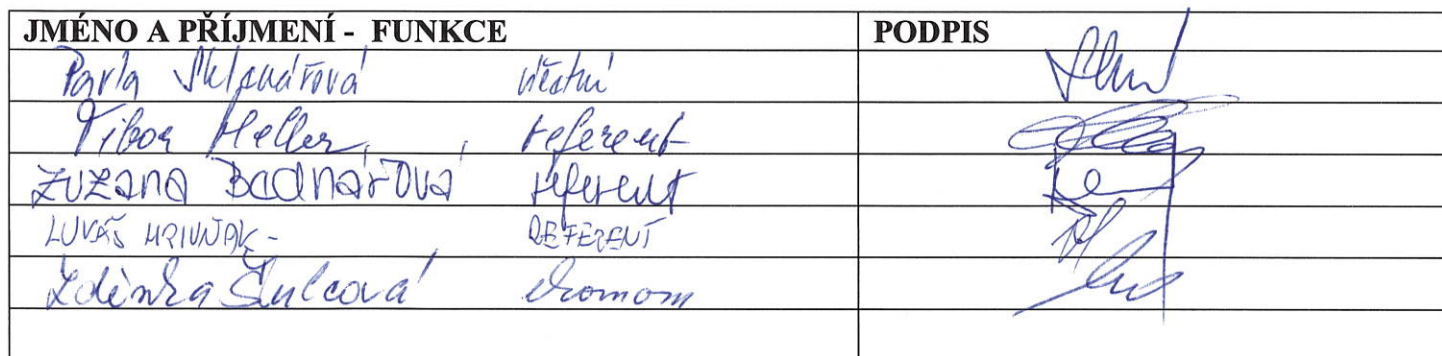 JMÉNO A PŘÍJMENÍ - FUNKCE PODPIS
Pavla Sklenářová účetní
Tibor Heller, referent
ZUZANA Bodnárová referent
LUKÁŠ HRIVŇÁK - REFERENT
Zdeňka Šulcová ekonom